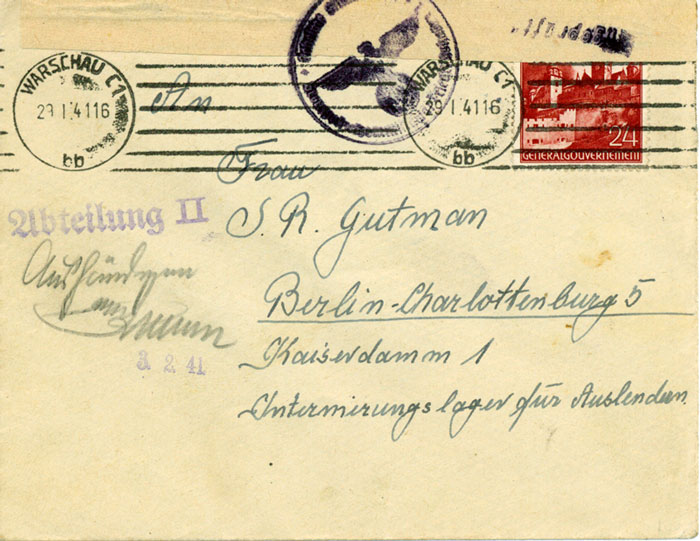 WARSCHAU C1
29.1.41 16
bb
WARSCHAU C1
29.1.41 16
bb
24
GENERALGOUVERNEMENT
An
Frau
S. R. Gutman
Berlin-Charlottenburg 5
Kaiserdamm 1
Internierungslager für Auslendern
Abteilung II
Aushändigen
3 2 41